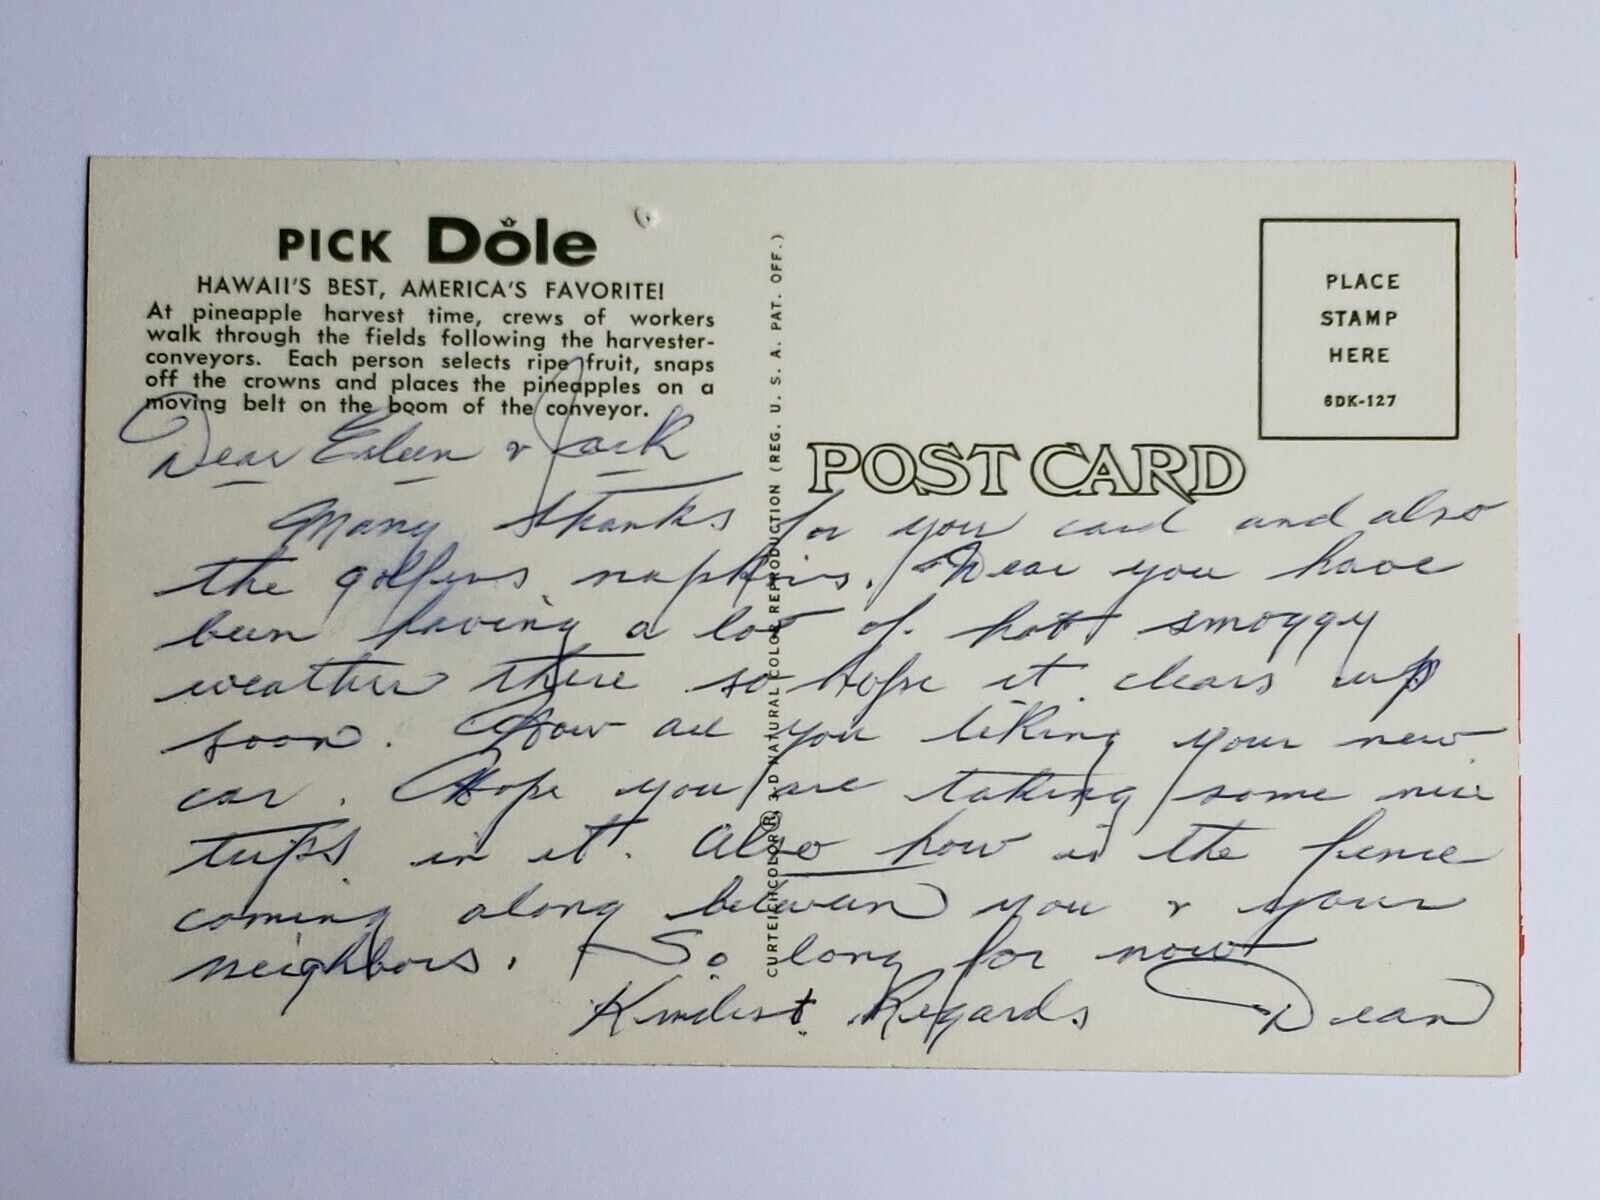 PICK Dole
HAWAII'S BEST, AMERICA'S FAVORITE!
At pineapple harvest time, crews of workers
walk through the fields following the harvester-
conveyors. Each person selects ripe fruit, snaps
off the crowns and places the pineapples on a
moving belt on the boom of the conveyor.
CURTEICHCOLOR® 3-D NATURAL COLOR REPRODUCTION (REG. U. S. A. PAT. OFF.)
PLACE
STAMP
HERE
6DK-127
POST CARD
Dear Eileen & Jack
Many thanks for your card and also
the golfers napkins. Hear you have
been having a lot of hot smoggy
weather there so hope it clears up
soon. How are you liking your new
car. Hope you are taking some nice
trips in it. Also how is the fence
coming along between you & your
neighbors. So long for now
Kindest Regards Dean